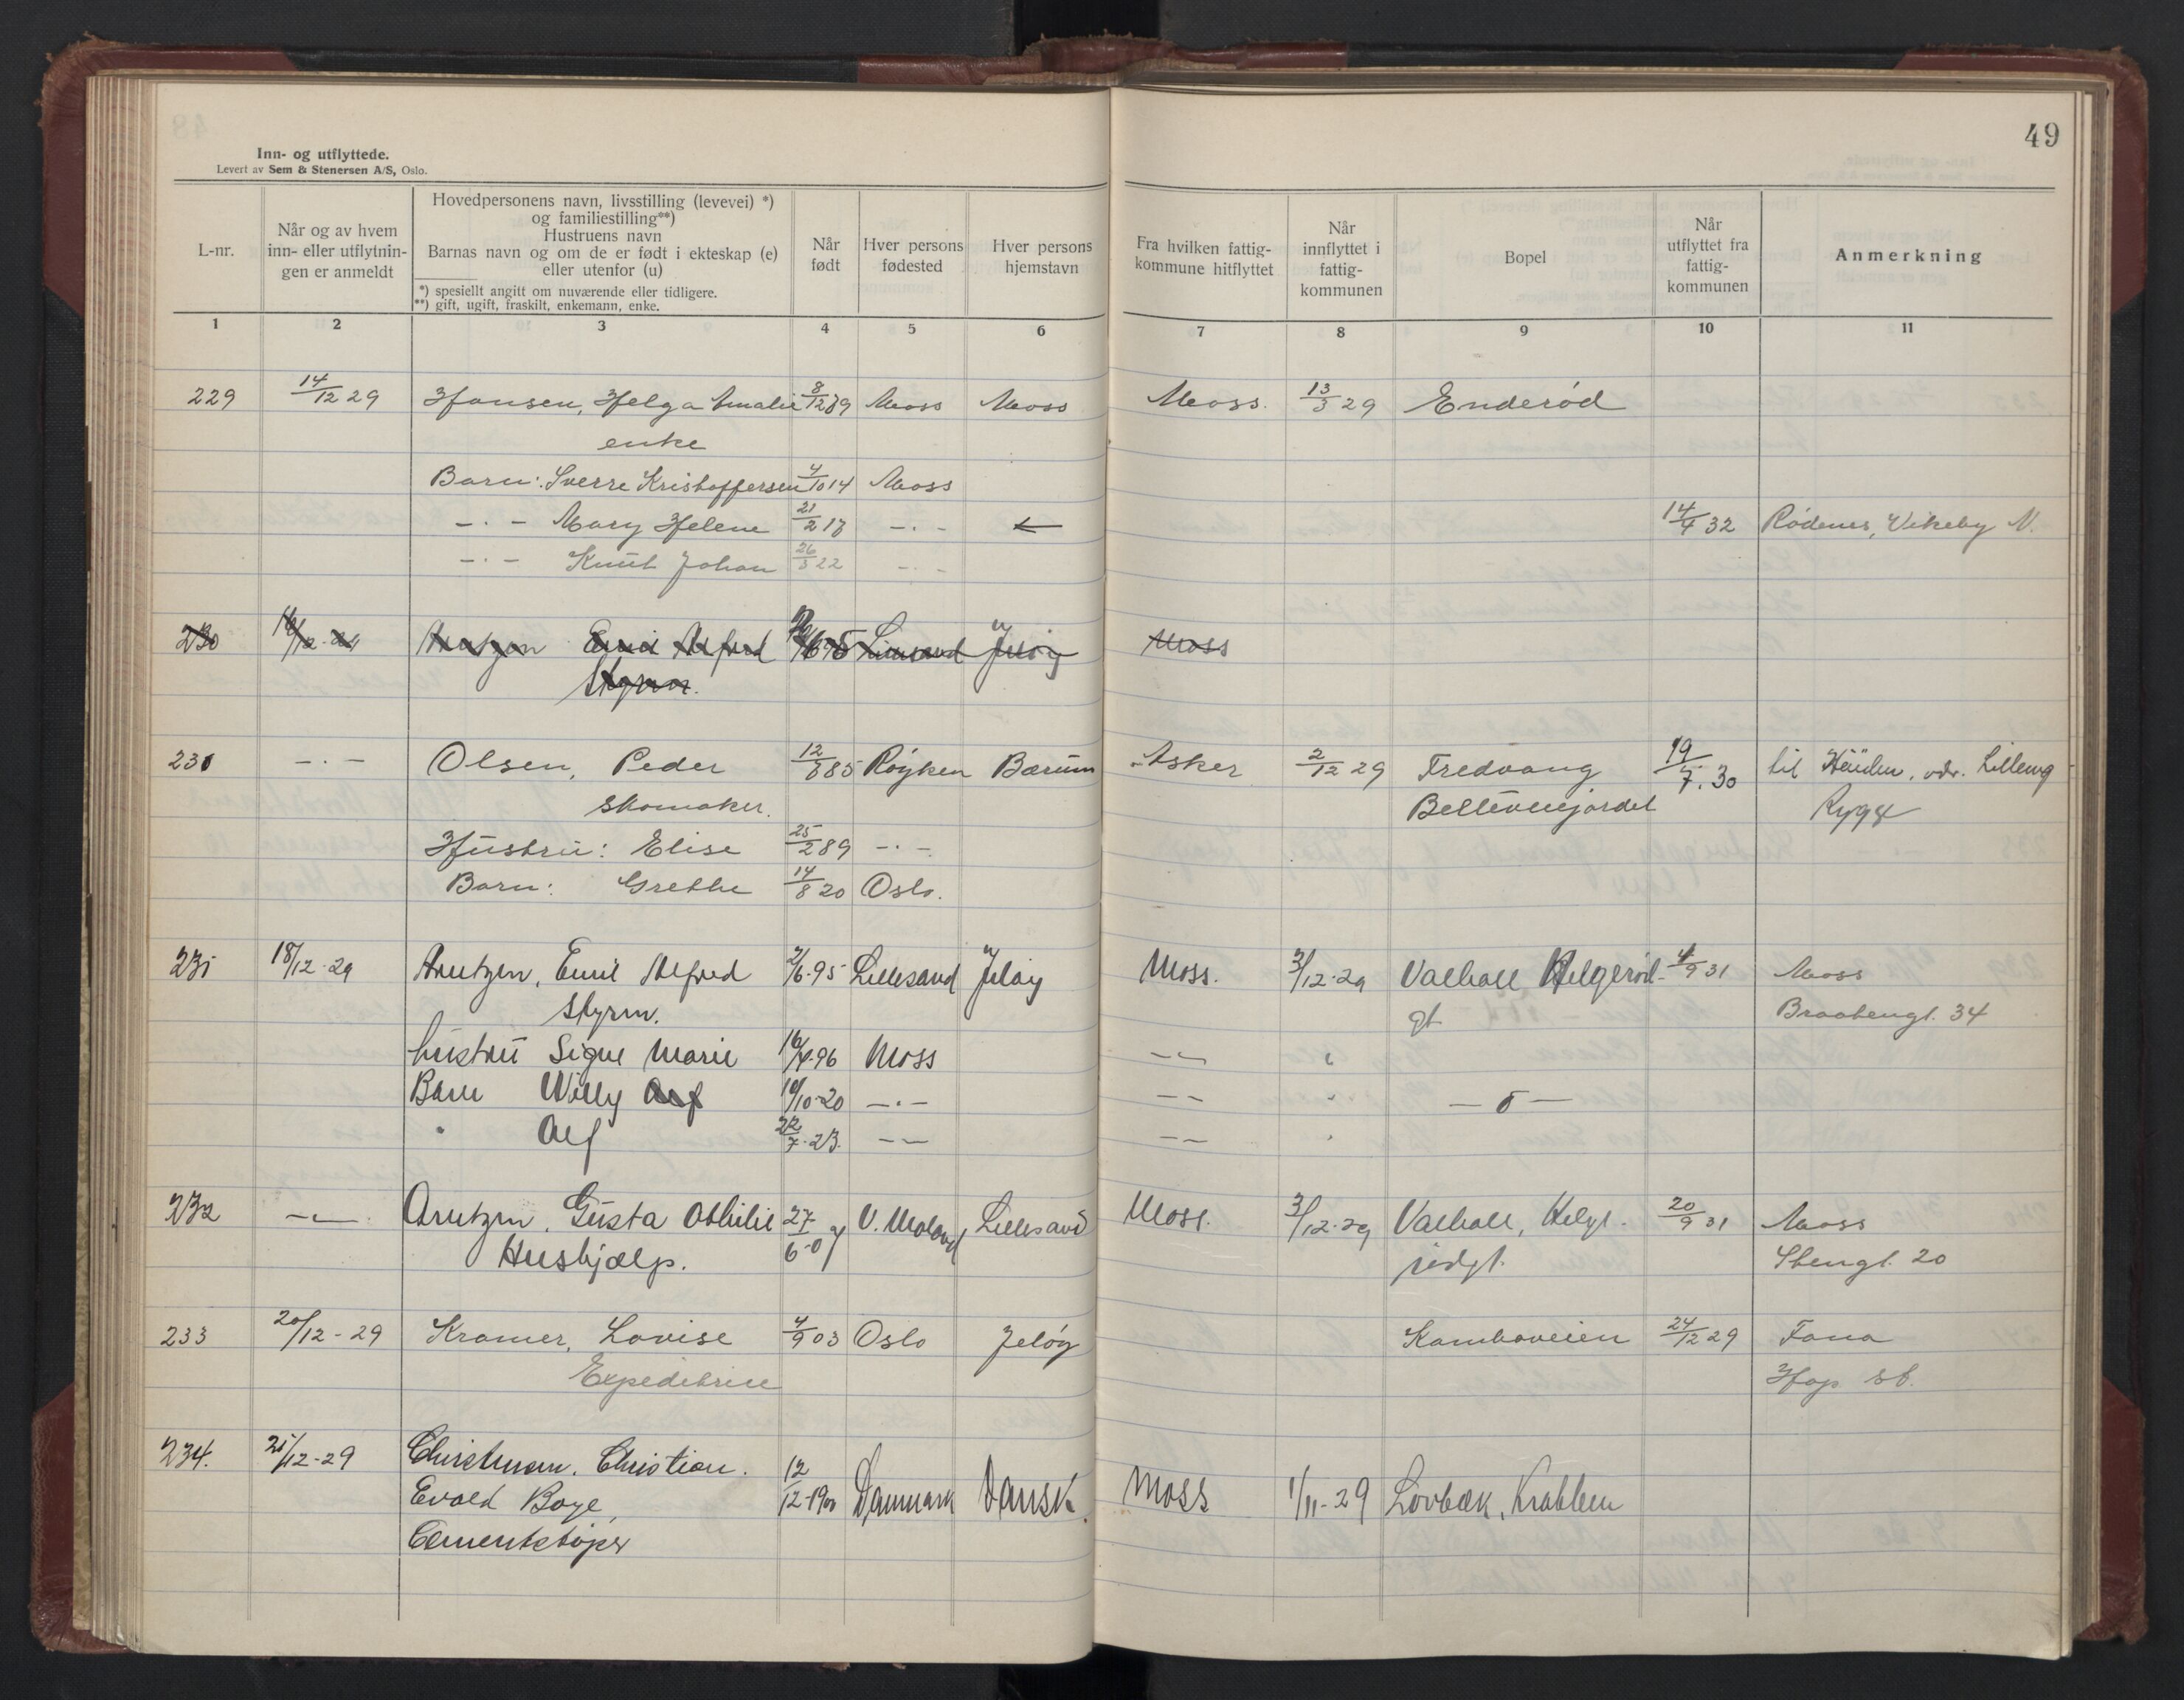 49
Inn- og utflyttede.
Levert av Sem & Stenersen A/S, Oslo.
L-nr.
Når og av hvem inn- eller utflytnin- gen er anmeldt
Hovedpersonens navn, livsstilling (levevei) *)
og familiestilling**)
Hustruens navn
Barnas navn og om de er født i ekteskap (e)
eller utenfor (u)
*) spesiellt angitt om nuværende eller tidligere.
**) gift, ugift, fraskilt, enkemann, enke.
Når født
Hver persons fødested
Hver persons hjemstavn
Fra hvilken fattig- kommune hitflyttet
Når innflyttet i fattig- kommunen
Bopel
Når utflyttet fra fattig- kommunen
Anmerkning
1 2 3 4 5 6 7 8 9 10 11
229 14/12 29 Hansen, Helga Amalie 8/12 89 Moss Moss Moss. 13/3 29 Enderød
enke
Barn: Sverre Kristoffersen 4/10 14 Moss
-.- Mary Helene 21/2 18 -.- ← 14/4 32 Rödenes, Vikeby N.
-.- Knut Johan 26/3 22 -.-
230 Arntzen Emil Alfred Lillesand Jeløy Moss
Styrm.
230 -.- Olsen, Peder 12/8 85 Røyken Bærum Asker 2/12 29 Fredvang 19/7. 30 til Lilleng
skomaker. Bellevuejordet Rygge
Hustru: Elise 25/2 89 -.-
Barn: Grethe 14/8 20 Oslo.
231 18/12-29 Arntzen, Emil Alfred 2/6-95 Lillesand Jeløy Moss. 3/12-29 Valhall Helgerød- 4/9 31 Moss
Styrm. gt Braatengt. 34
hustru Signe Marie 16/4-96 Moss
Barn Willy Alf 10/10-20 -.-
" Alf 22/7-23.
232 Arntzen, Gusta Othilie 27/6-07 V. Moland Lillesand Moss. 3/12-29 Valhall, Helge- 20/9 31 Moss
Hushjælp. rødgt. Stengt. 20
233 20/12-29 Kramer, Lovise 4/9 03 Oslo Jeløy Kamboveien 24/12 29 Fana
Expeditrise Hop st.
234. 21/12-29 Christian. 12/12-1900 Danmark Dansk Moss 1/11-29 Lovbæk, Krabben
Evald Boye,
Cementstøper